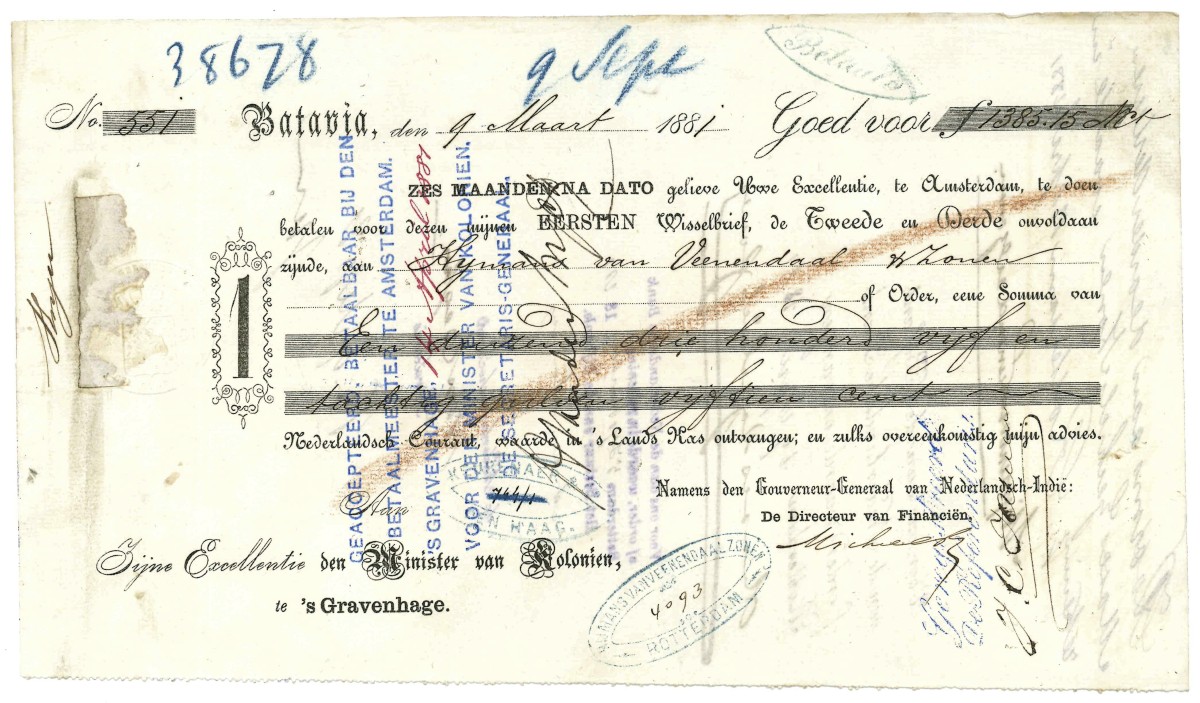 38678
9 Sept
Betaald
No. 551 Batavia, den 9 Maart 1881 Goed voor f 1385.15 Nct
ZES MAANDEN NA DATO gelieve Uwe Excellentie, te Amsterdam, te doen
betalen voor dezen mijnen EERSTEN Wisselbrief, de Tweede en Derde onvoldaan
zijnde, aan Hymans van Veenendaal & Zonen
of Order, eene Somma van
Een duizend drie honderd vijf en
tachtig gulden vijftien cent
Nederlandsch Courant, waarde in 's Lands Kas ontvangen; en zulks overeenkomstig mijn advies.
1
Aan
Namens den Gouverneur-Generaal van Nederlandsch-Indië:
De Directeur van Financiën,
Zijne Excellentie den Minister van Kolonien,
te 's Gravenhage.
GEACCEPTEERD: BETAALBAAR BIJ DEN
BETAALMEESTER TE AMSTERDAM.
'S GRAVENHAGE, April 1881
VOOR DEN MINISTER VAN KOLONIEN.
DE SECRETARIS-GENERAAL,
KEURENAER &
764/1
N HAAG.
HIJMANS VAN VEENENDAAL ZONEN
4093
ROTTERDAM
Geregistreerd
De Referendaris.